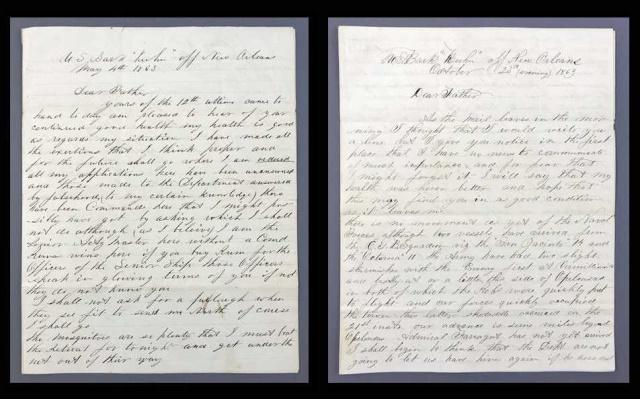 U.S. Bark "Kuhn" off New Orleans
May 4th 1863
Dear Father
yours of the 12th ultimo came to
hand to day am pleased to hear of your
continued good health my health is good
as regards my situation I have made all
the exertions that I think proper and
for the future shall go where I am ordered
all my applications here have been unanswered
and those made to the Department answered
by falsehoods to my certain knowledge there
have been Commands here that I might pos-
sibly have got by asking which I shall
not do although as I believe I am the
Senior Actg Master here without a Comd
Officers of the Senior Ship those Officers
speak in glowing terms of you if not
they do not know you
I shall not ask for a furlough when
they see fit to send me North of course
I shall go
The mosquitoes are so plenty that I must beat
the retreat for to night and get under the
net out of their way
U.S. Bark "Kuhn" off New Orleans
October 23rd (evening) 1863
Dear Father
As the mail leaves in the mor-
ning I thought that I would write you
a line but I give you notice in the first
place that I have no news to communicate
of much importance and for fear that
I might forget it I will say that my
health was never better and hope that
this may find you in as good condition
as it leaves me
there is no movement as yet of the Naval
Forces although two vessels have arrived from
the Army have had two slight
skirmishes with the Enemy first at Vermillion
and lastly at or a little this side of Opelousas
in both of which the Rebs were quickly put
to flight and our forces quickly occupied
the town the latter skirmish occured on the
21st inst our advance is some miles beyond
Opelousas Admiral Farragut has not yet arrived
I shall begin to think that the Dept are not
going to let us have him again if he does not